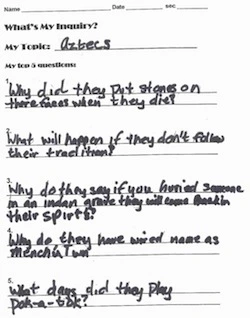 Name Date sec
What's My Inquiry?
My Topic: aztecs
My top 5 questions:
1. Why did they put stones on
there faces when they die?
2. What will happen if they don't follow
their tradition?
3. Why do they say if you buried someone
in an indan grave they will come back in
their spirits?
4. Why do they have wired name as
5. What days did they play
pok-a-tok?